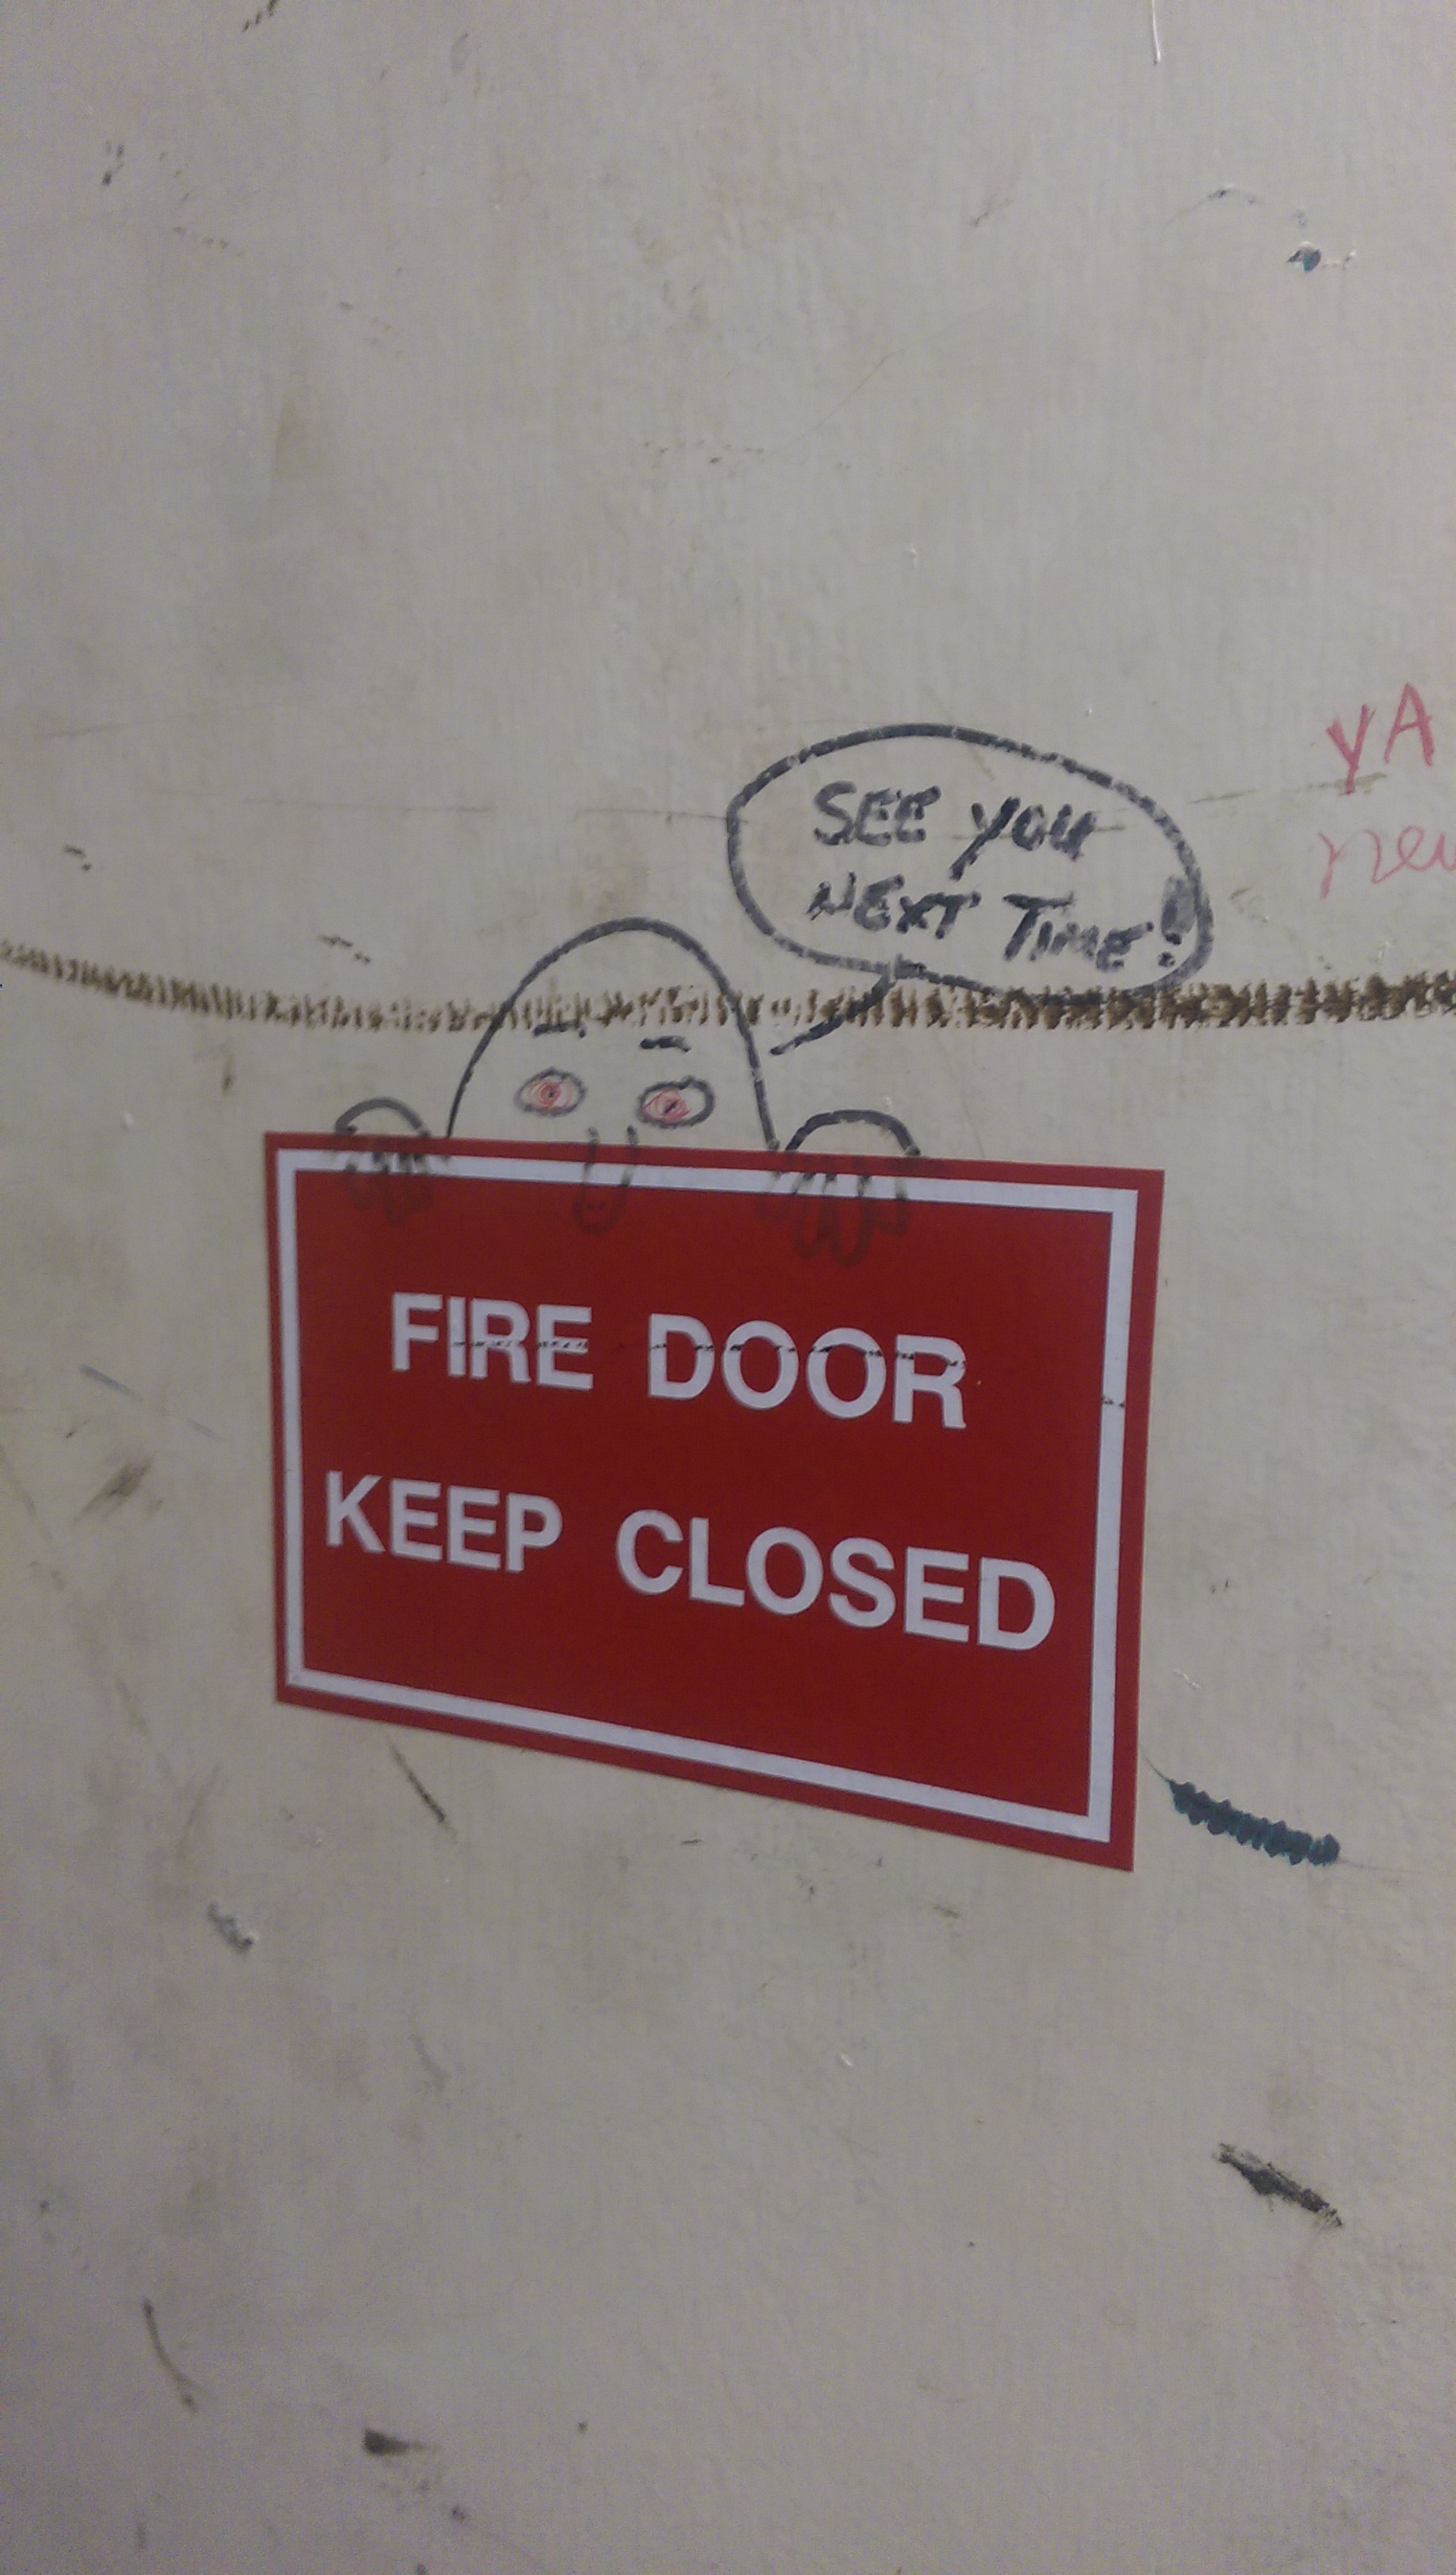 SEE YOU
NEXT TIME!
YA
FIRE DOOR
KEEP CLOSED